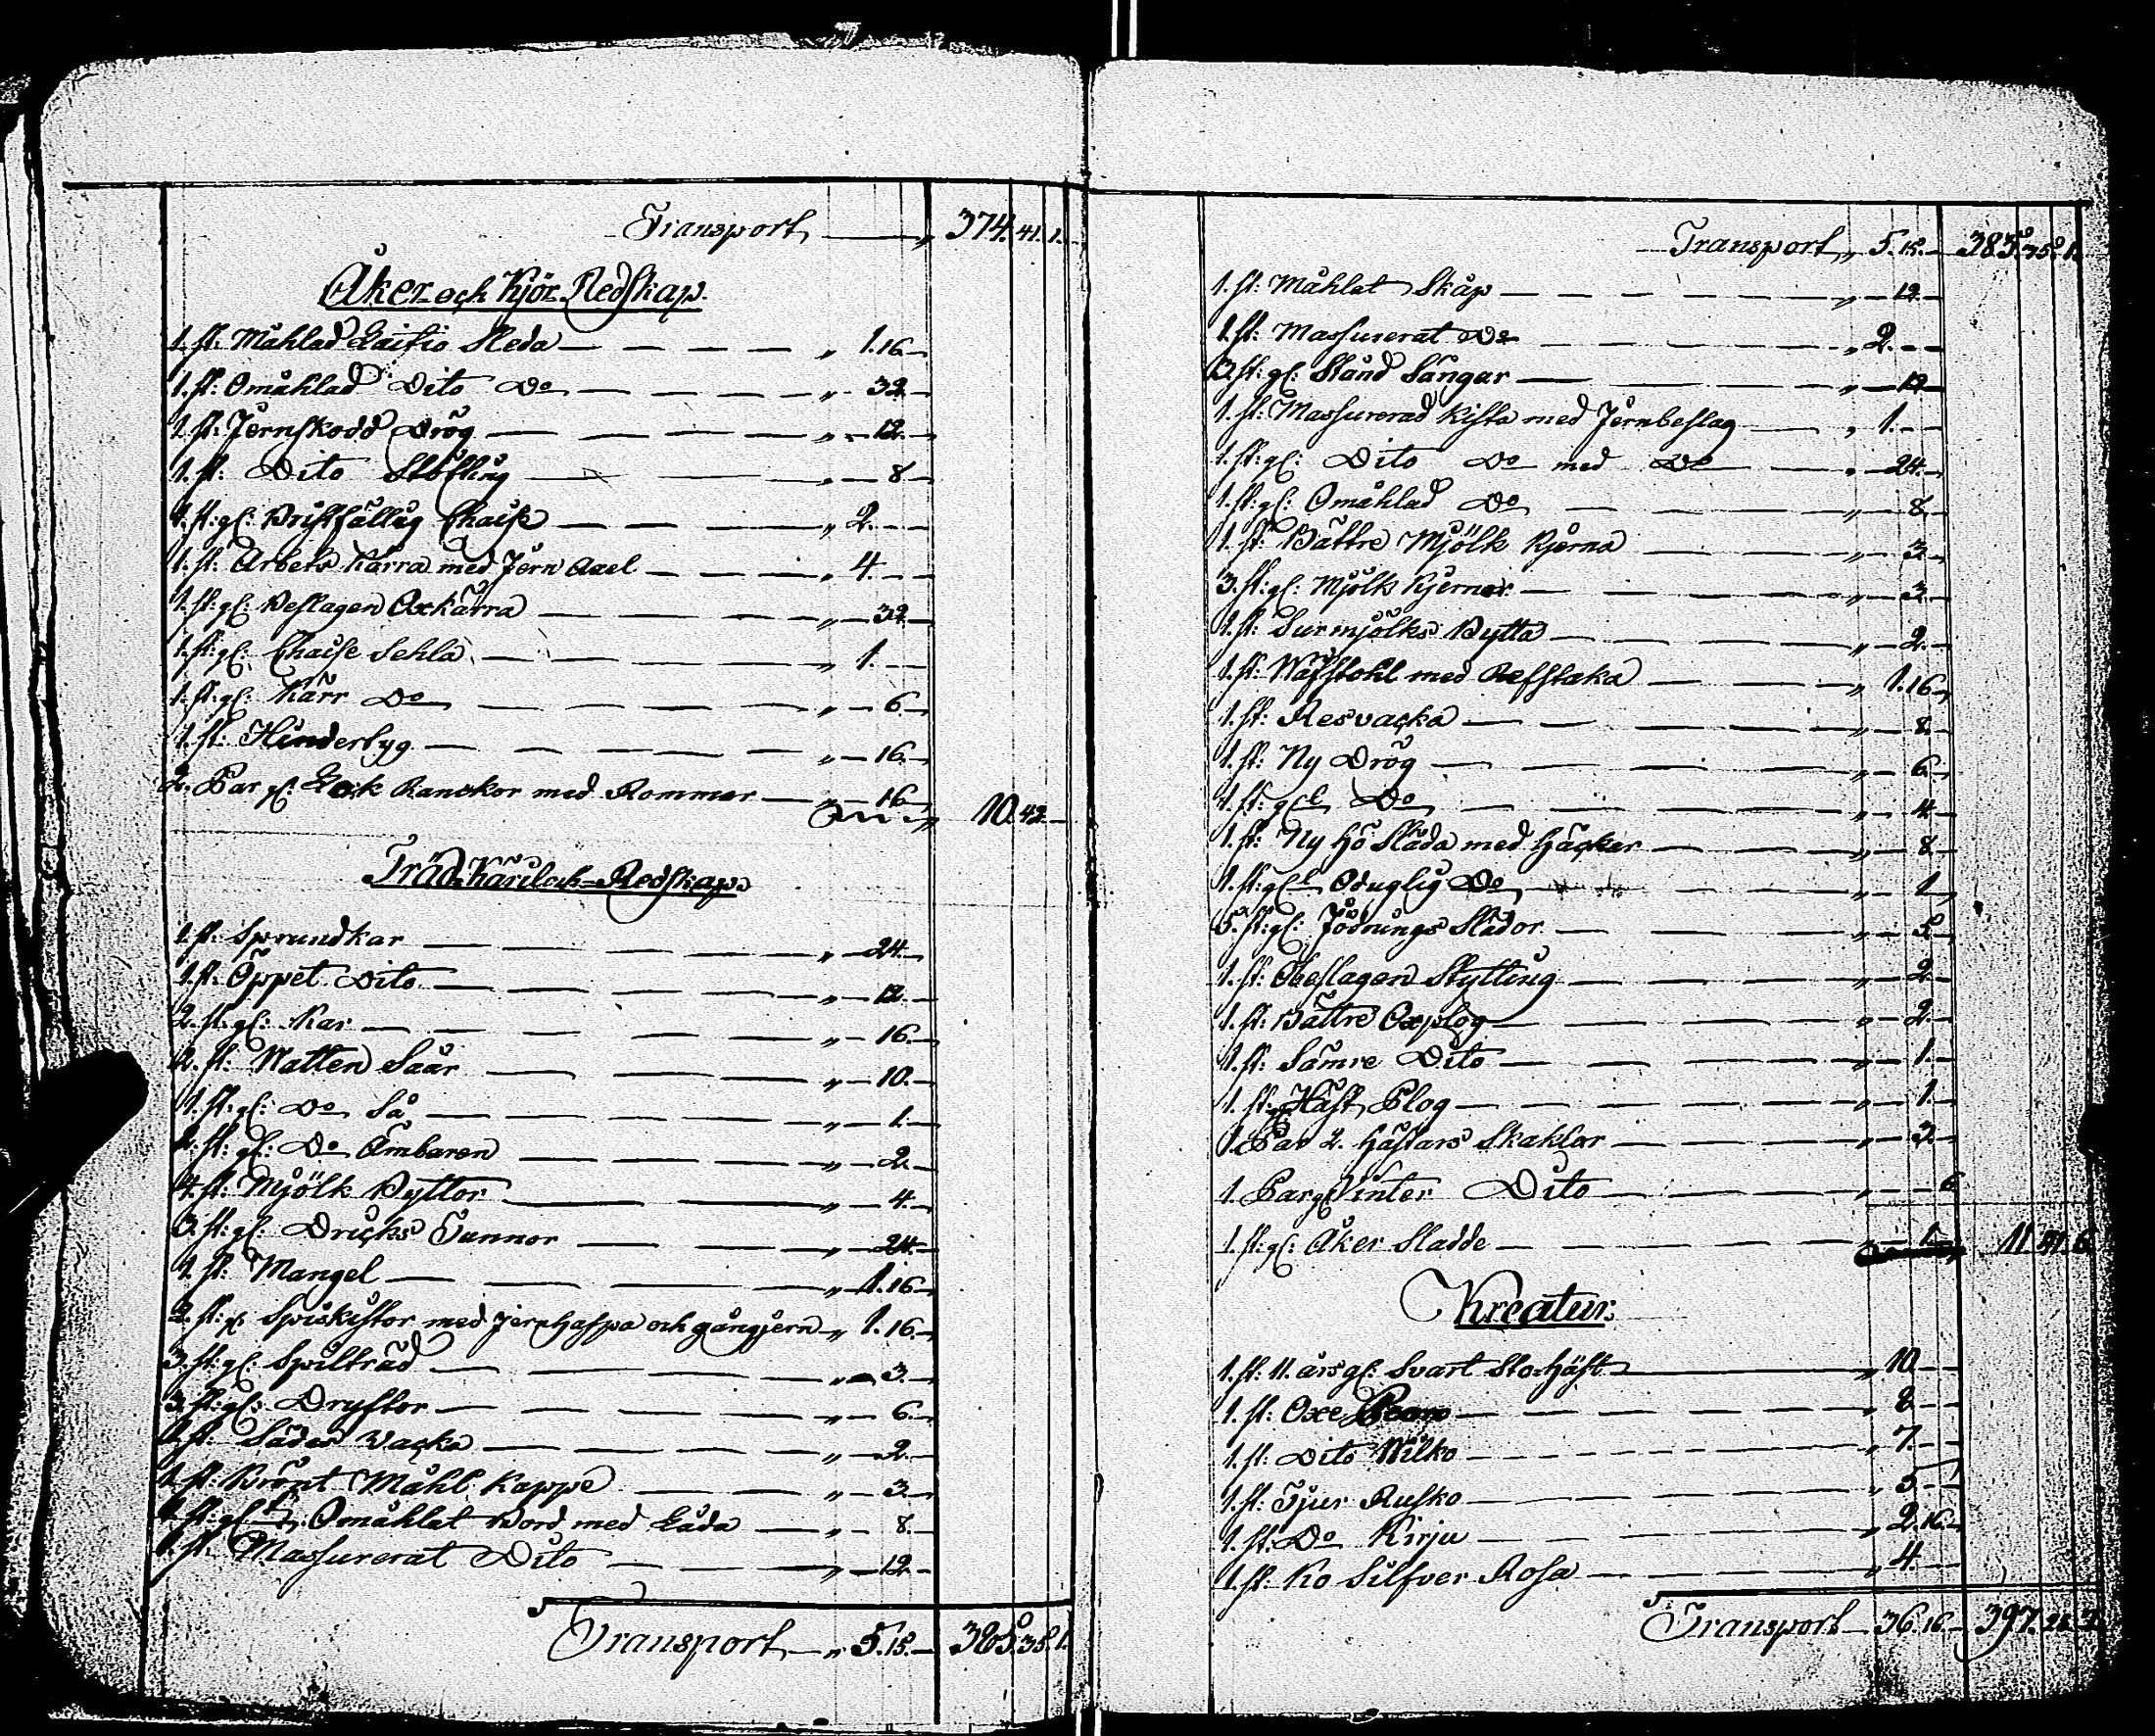 Transport — „ 374. 41. 1.
Åker och Kjör Redskap.
1. st. Måhlad Laitio Sleda — „ 1. 16 —
1. st: Omåhlad Dito Do — „ 32 —
1. st: Jernskodd Drög — „ 12 —
1. st: Dito Stötting — „ 8 —
1. st: gl: Bristfällig Chaise — „ 2. —
1. st: Arbets Kärra med Jern Axel — „ 4. —
1. st: gl: Beslagen Oxkärra — „ 32 —
1. st: gl: Chaise Sehla — „ 1. —
1. st: gl: Kärr Do — „ 6 —
1. st: Hinderlyg — „ 16 —
2. Par gl: Lock Ranckor med Rommor — „ 16 —
10. 42 —
Träd Käril och Redskap.
1. st: Sprundkar — „ 24. —
1. st: Öppet Dito — „ 12 —
2. st: gl: Kar — „ 16. —
2. st: Watten Såar — „ 10. —
1. st: gl: Do Så — „ 1. —
2. st: gl: Do Ämbaren — „ 2. —
4. st: Mjölk Byttor — „ 4. —
3. st: gl: Dricks Tunnor — „ 24. —
1. st: Mangel — „ 1. 16 —
2. st: gl: Spiskistor med Jernhaspa och gångjern „ 1. 16 —
3. st: gl: Spilträd — „ 3. —
3. st: gl: Dryftor — „ 6. —
1. st: Sädes Wacka — „ 2. —
1. st: Bränt Måhl Kappe — „ 3. —
1. st: gl: Omåhlat Bord med Låda — „ 8. —
1. st: Massurerat Dito — „ 12. —
Transport — „ 5. 15. — 385. 35. 1.
Transport „ 5. 15. — 385. 35. 1.
1. st: Måhlat Skåp — „ 12 —
1. st: Massurerat Do — „ 2. —
3. st: gl: Ständ Sängar — „ 12 —
1. st: Massurerad Kista med Jernbeslag — „ 1. —
1. st: gl: Dito Do med Do — „ 24. —
1. st: gl: Omåhlad Do — „ 8 —
1. st: Bättre Mjölk Kjerna — „ 3 —
3. st: gl: Mjölk Kjernor — „ 3 —
1. st: Surmjölks Bytta — „ 2 —
1. st: Wäfstohl med Refstaka — „ 1. 16 —
1. st: Resvacka — „ 8 —
1. st: Ny Drög — „ 6 —
1. st: gl Do — „ 4 —
1. st: Ny Hö Släda med Häcker — „ 8 —
1. st: gl Oduglig Do — „ 1 —
5. st: gl: Jödnings Slädor — „ 5 —
1. st: Obeslagen Stytting — „ 2 —
1. st: Bättre Oxplog — „ 2 —
1. st: Sämre Dito — „ 1 —
1. st: gl Häst Plog — „ 1. —
1. Par 2. Hästars Skaklar — „ 3 —
1. Par gl Winter Dito — „ 6
1. st: gl: Åker Sladde — „ 1 — 11. 41. 6
Kreatur.
1. st: 11. års gl: Svart Sto Häst — „ 10 —
1. st: Oxe — „ 8 —
1. st: Dito Wilko — „ 7. —
1. st: Tjur Rusko — „ 5 —
1. st: Do Kirju — „ 2. 16 —
1. st: Ko Silfver Rosa — „ 4. —
Transport — 36. 16. — 397.